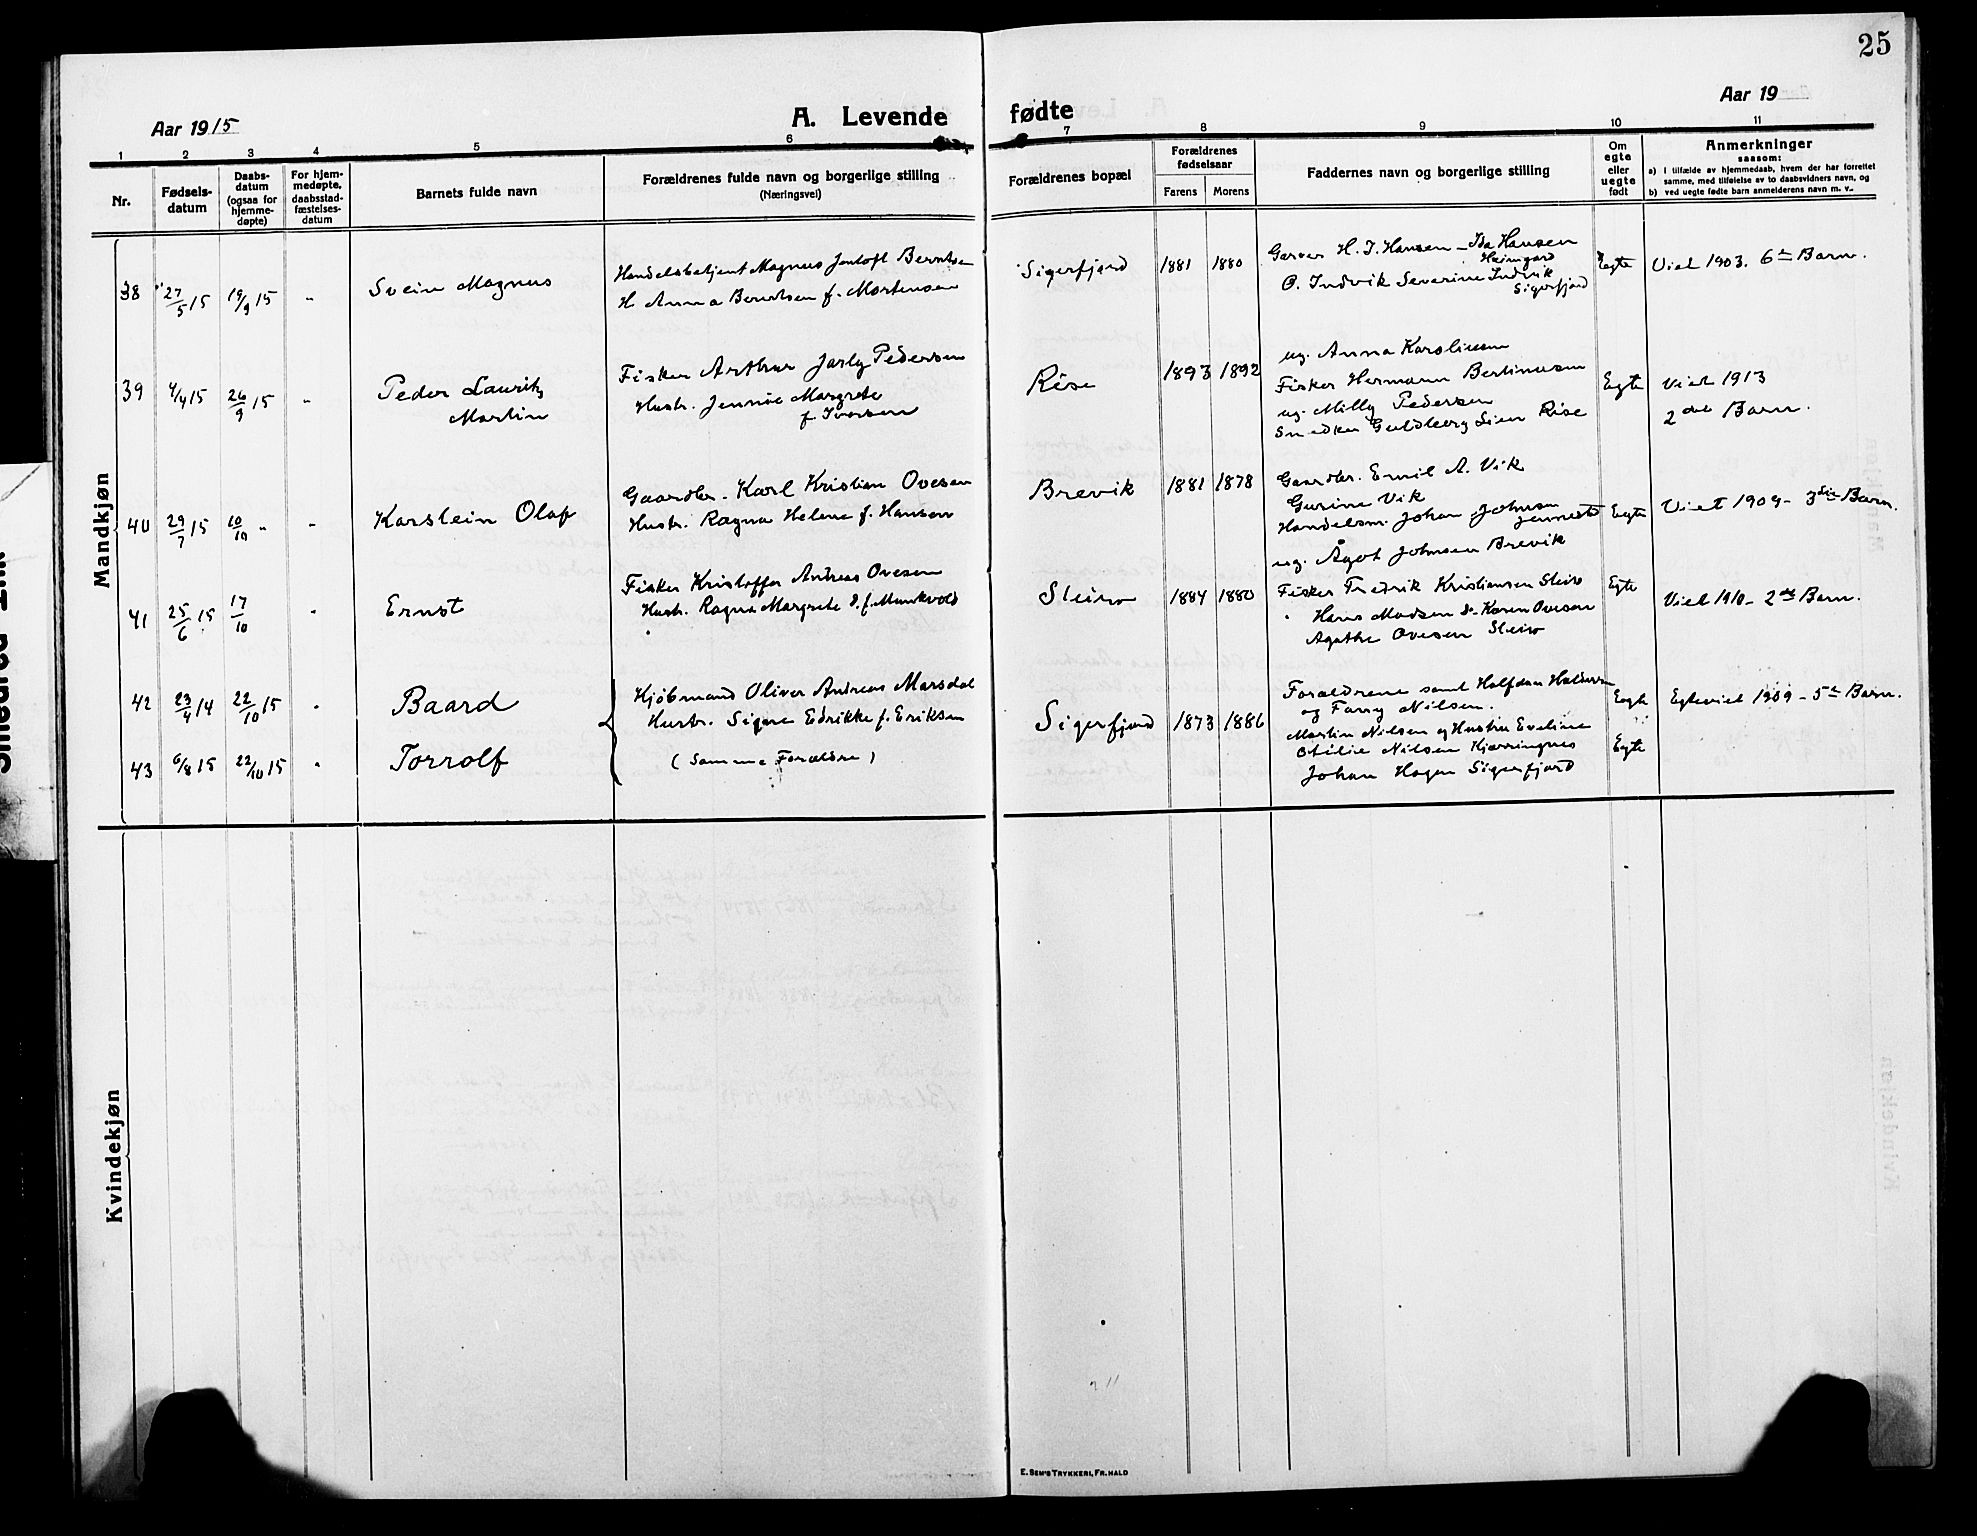 25
Aar 1915
A. Levende
fødte
Aar 19
1 2 3 4 5 6 7 8 9 10 11
Nr.
Fødsels-
datum
Daabs-
datum
(ogsaa for
hjemme-
døpte)
For hjem-
medøpte,
daabsstad-
fæstelses-
datum
Barnets fulde navn
Forældrenes fulde navn og borgerlige stilling
(Næringsvei)
Forældrenes bopæl
Forældrenes
fødselsaar
Farens Morens
Faddernes navn og borgerlige stilling
Om
egte
eller
uegte
født
Anmerkninger
saasom:
a) I tilfælde av hjemmedaab, hvem der har forrettet
samme, med tilføielse av to daabsvidners navn, og
b) ved uegte fødte barn anmelderens navn m. v.
Mandkjøn
38 27/5 15 19/9 15 " Svein Magnus
Handelsbetjent Magnus Jentoft Berntsen
H. Anna Berntsen f. Mortensen
Sigerfjord 1881 1880
Garver H. J. Hansen - Ida Hansen
Heimgard
O. Indvik Severine Indvik
Sigerfjord
Egte Viet 1903. 6te Barn.
39 4/4 15 26/9 15 " Peder Lauritz
Martin
Fisker Arthur Jarly Pedersen
Hustr. Jennie Margrete
f. Iversen
Rise 1893 1892
ug. Anna Karolinsen
Fisker Hermann Bertinusen
ug. Milly Pedersen
Snedker Guldberg Lien Rise
Egte Viet 1913
2det Barn.
40 29/7 15 10/10 " " Karstein Olaf
Gaardbr. Karl Kristian Ovesen
Hustr. Ragna Helene f. Hansen
Brevik 1881 1878
Gaardbr. Emil A. Vik
Gurine Vik
Handelsm. Johan Johnsen
Jennestad
ug. Ågot Johnsen Brevik
Egte Viet 1909 - 3die Barn.
41 25/6 15 17/10 " Ernst
Fisker Kristoffer Andreas Ovesen
Hustr. Ragna Margrete O. f. Munkvold
Sleiro 1884 1880
Fisker Fredrik Kristiansen Sleiro
" Hans Madsen do - Karen Ovesen
Agathe Ovesen Sleiro
Egte Viet 1910 - 2det Barn.
42 23/4 14 22/10 15 " Baard
Kjøbmand Oliver Andreas Marsdal
Hustr. Signe Edrikke f. Eriksen
Sigerfjord 1873 1886
Forældrene samt Halfdan
og Fanny Nilsen.
Egte Egteviet 1909 - 5te Barn.
43 6/8 15 22/10 15 " Torrolf
(Samme Forældre)
Martin Nilsen og Hustru Eveline
Otilie Nilsen Kjærringnes
Johan Hagen Sigerfjord
Egte
Kvindekjøn
E. Sem's Trykkeri, Fr.hald